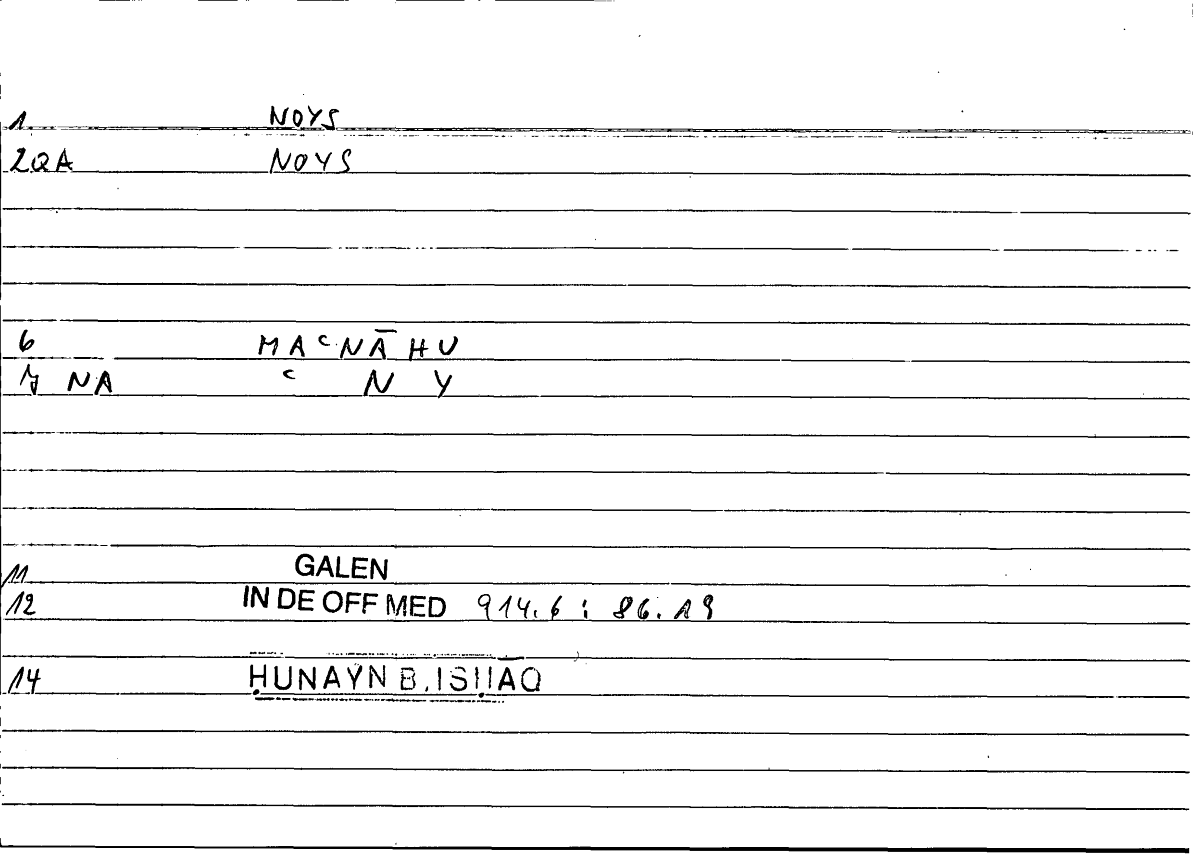 1 NOYS
2QA NOYS
6 MAᶜNĀHU
7 NA ᶜ N Y
11 GALEN
12 IN DE OFF MED 914.6 : 86.19
14 ḤUNAYN B. ISḤĀQ